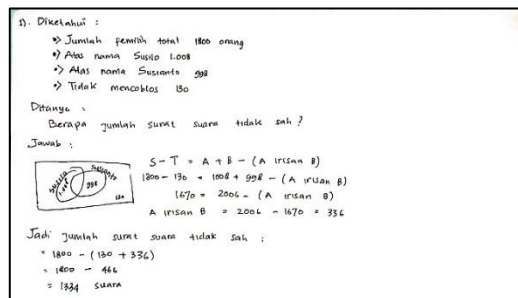 1). Diketahui :
•> Jumlah pemilih total 1800 orang
•> Atas nama Susilo 1.008
•> Atas nama Susianto 998
•> Tidak mencoblos 130
Ditanya :
Berapa jumlah surat suara tidak sah ?
Jawab :
Susilo 1.008
Susianto 998
130
S - T = A + B - (A irisan B)
1800 - 130 = 1008 + 998 - (A irisan B)
1670 = 2006 - (A irisan B)
A irisan B = 2006 - 1670 = 336
Jadi jumlah surat suara tidak sah :
= 1800 - (130 + 336)
= 1800 - 466
= 1334 suara